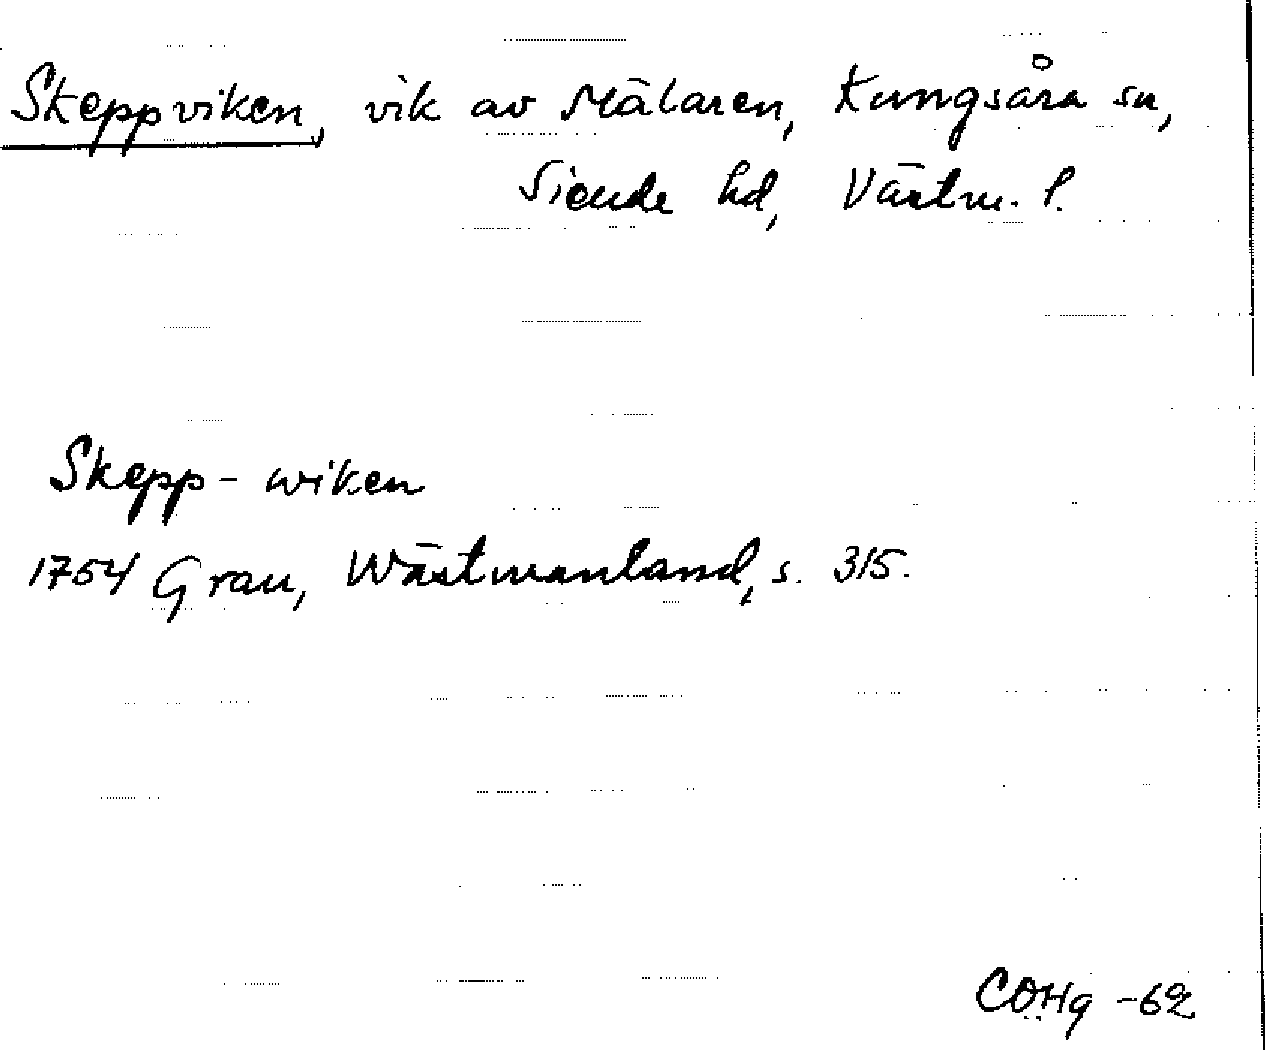 Skeppviken, vik av Mälaren, Kungsåra sn,
Siende hd, Västm. l.
Skepp-wiken
1754 Grau, Wästmanland, s. 315.
COHg -62